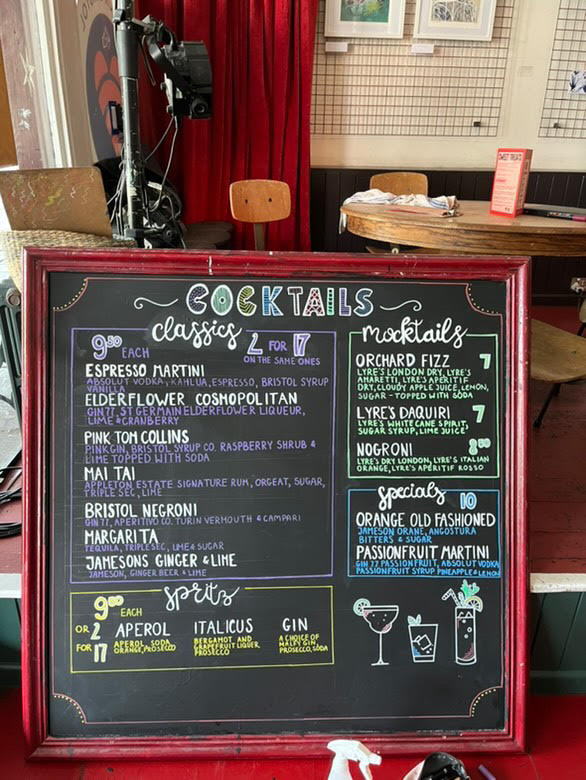 SWEET TREATS
COCKTAILS
classics
9.50 EACH
2 FOR 17
ON THE SAME ONES
ESPRESSO MARTINI
ABSOLUT VODKA, KAHLUA, ESPRESSO, BRISTOL SYRUP
VANILLA
ELDERFLOWER COSMOPOLITAN
GIN 77, ST GERMAIN ELDERFLOWER LIQUEUR,
LIME & CRANBERRY
PINK TOM COLLINS
PINK GIN, BRISTOL SYRUP CO. RASPBERRY SHRUB &
LIME TOPPED WITH SODA
MAI TAI
APPLETON ESTATE SIGNATURE RUM, ORGEAT, SUGAR,
TRIPLE SEC, LIME
BRISTOL NEGRONI
GIN 77, APERITIVO CO. TURIN VERMOUTH & CAMPARI
MARGARITA
TEQUILA, TRIPLE SEC, LIME & SUGAR
JAMESONS GINGER & LIME
JAMESON, GINGER BEER & LIME
mocktails
ORCHARD FIZZ 7
LYRE'S LONDON DRY, LYRE'S
AMARETTI, LYRE'S APERITIF
DRY, CLOUDY APPLE JUICE, LEMON,
SUGAR - TOPPED WITH SODA
LYRE'S DAQUIRI 7
LYRE'S WHITE CANE SPIRIT,
SUGAR SYRUP, LIME JUICE
NOGRONI
LYRE'S DRY LONDON, LYRE'S ITALIAN
ORANGE, LYRE'S APERITIF ROSSO
specials 10
ORANGE OLD FASHIONED
JAMESON ORANE, ANGOSTURA
BITTERS & SUGAR
PASSIONFRUIT MARTINI
GIN 77 PASSIONFRUIT, ABSOLUT VODKA
PASSIONFRUIT SYRUP PINEAPPLE & LEMON
spritz
EACH
OR 2
FOR 17
APEROL
APEROL, SODA,
ORANGE, PROSECCO
ITALICUS
BERGAMOT AND
GRAPEFRUIT LIQUER,
PROSECCO
GIN
A CHOICE OF
MALFY GIN,
PROSECCO, SODA